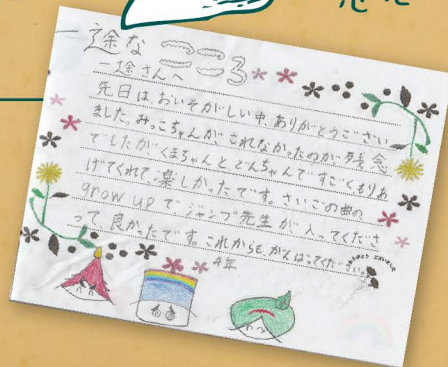 一途な こころ
一途さんへ
先日は、おいそがしい中、ありがとうござい
ました。みっこちゃんが、これなかったのが残念
でしたがくまちゃんとどんちゃんですごくもりあ
げてくれて、楽しかったです。さいごの曲の
grow upで、ジャンプ先生が入ってくださ
って良かったです。これからも、がんばってください。
4年